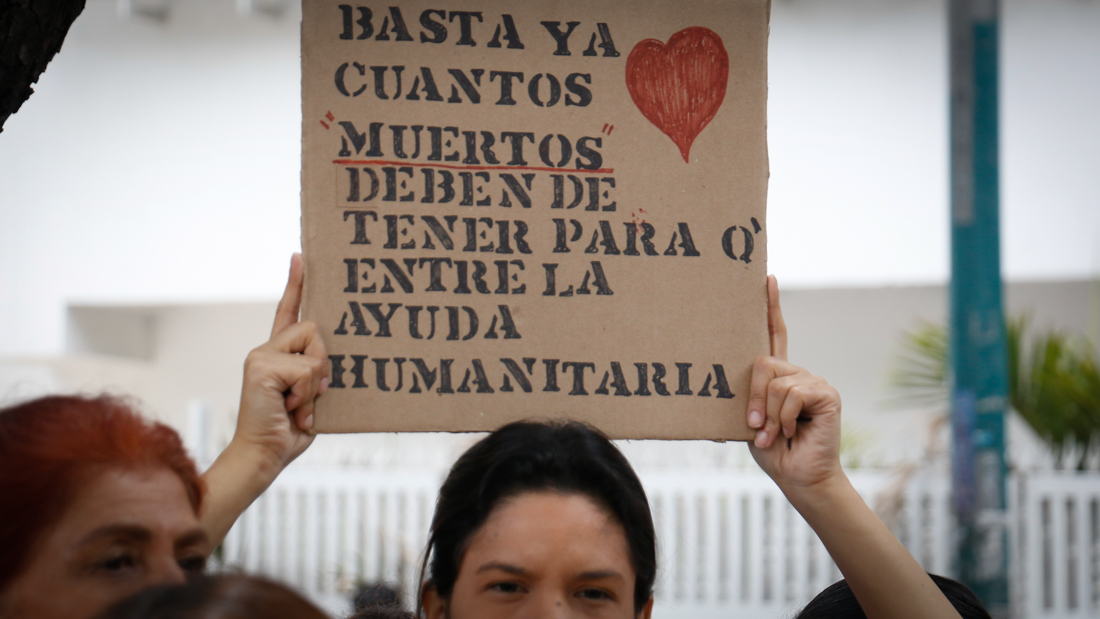 BASTA YA
CUANTOS
"MUERTOS"
DEBEN DE
TENER PARA Q'
ENTRE LA
AYUDA
HUMANITARIA